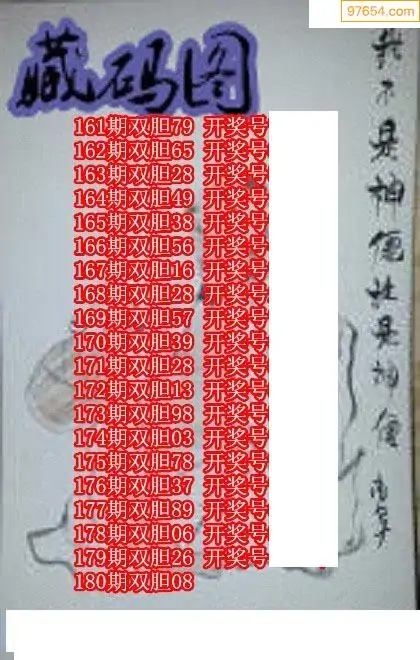 97654.com
藏码图
161期双胆79 开奖号
162期双胆65 开奖号
163期双胆28 开奖号
164期双胆49 开奖号
165期双胆38 开奖号
166期双胆56 开奖号
167期双胆16 开奖号
168期双胆28 开奖号
169期双胆57 开奖号
170期双胆39 开奖号
171期双胆28 开奖号
172期双胆13 开奖号
173期双胆98 开奖号
174期双胆03 开奖号
175期双胆78 开奖号
176期双胆37 开奖号
177期双胆89 开奖号
178期双胆06 开奖号
179期双胆26 开奖号
180期双胆08
我不是神但也是神